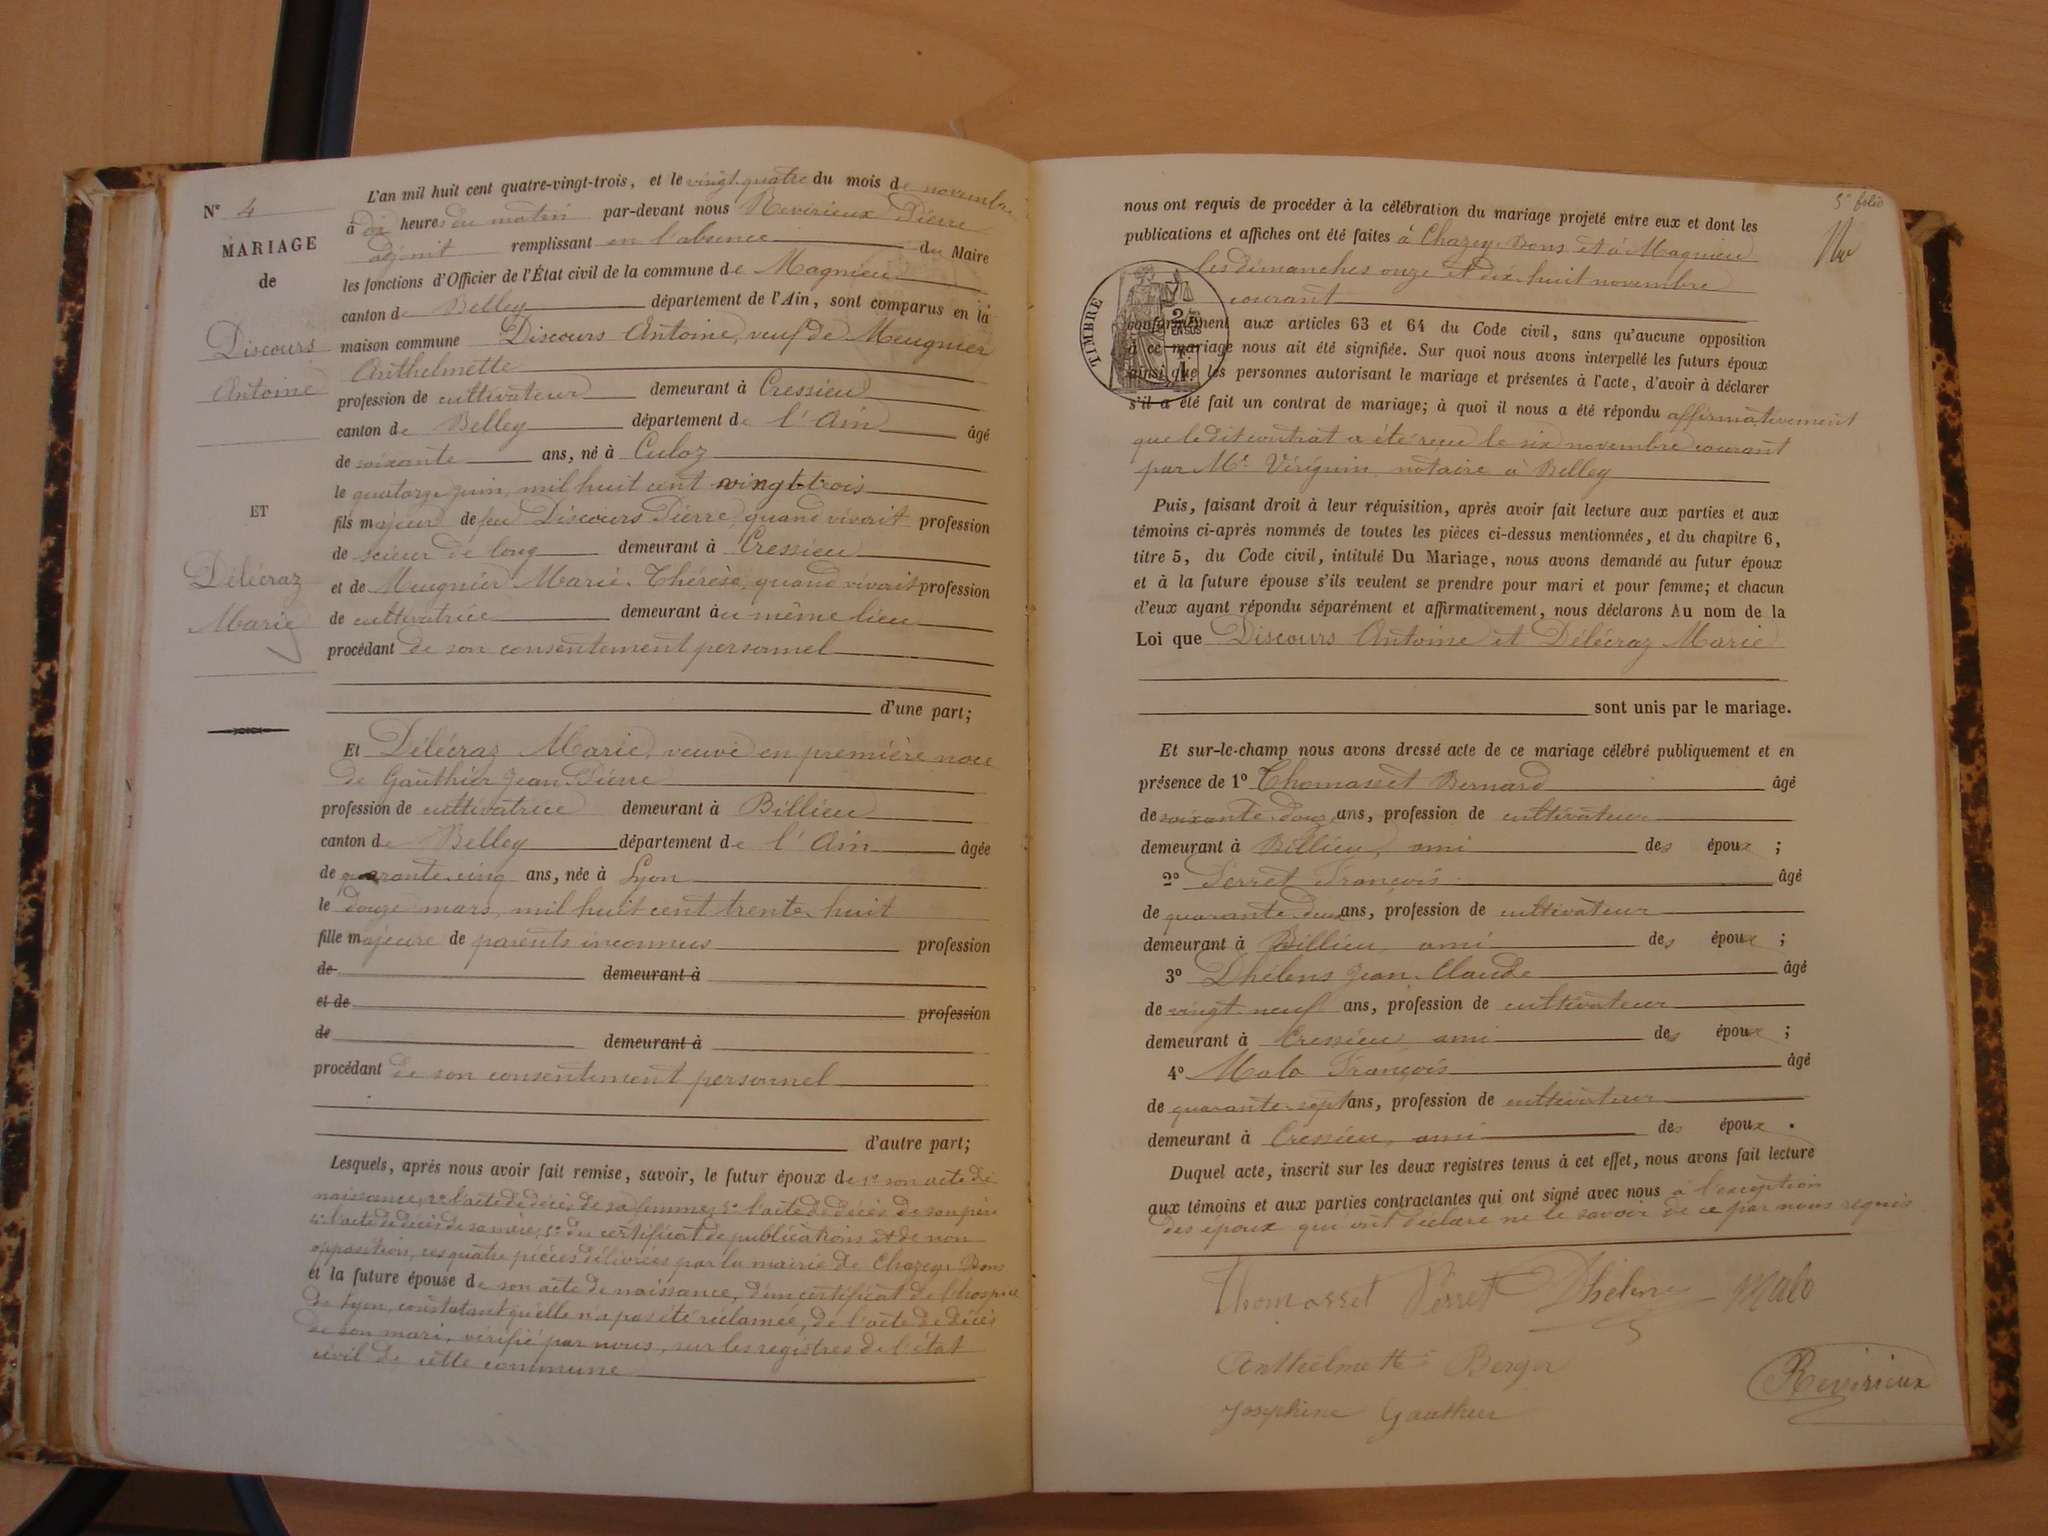 N° 4
MARIAGE
de
Discours
Antoine
ET
Délécraz
Marie
L'an mil huit cent quatre-vingt-trois, et le vingt-quatre du mois de novembre
à dix heures du matin par-devant nous Revirieux Pierre
adjoint remplissant en l'absence du Maire
les fonctions d'Officier de l'État civil de la commune de Magnieu
canton de Belley département de l'Ain, sont comparus en la
maison commune Discours Antoine, veuf de Meugnier
Anthelmette
profession de cultivateur demeurant à Cressieu
canton de Belley département de l'Ain âgé
de soixante ans, né à Culoz
le quatorze juin, mil huit cent vingt-trois
fils majeur de feu Discours Pierre, quand vivait profession
de scieur de long demeurant à Cressieu
et de Meugnier Marie-Thérèse, quand vivait profession
de cultivatrice demeurant au même lieu
procédant de son consentement personnel
d'une part;
Et Délécraz Marie, veuve en première noce
de Gauthier Jean Pierre
profession de cultivatrice demeurant à Billieu
canton de Belley département de l'Ain âgée
de quarante-cinq ans, née à Lyon
le douze mars, mil huit cent trente-huit
fille majeure de parents inconnus profession
de demeurant à
et de profession
de demeurant à
procédant de son consentement personnel
d'autre part;
Lesquels, après nous avoir fait remise, savoir, le futur époux de 1° son acte de
naissance, 2° l'acte de décès de sa femme, 3° l'acte de décès de son père
4° l'acte de décès de sa mère, 5° du certificat de publications et de non
opposition, ces quatre pièces délivrées par la mairie de Chazey-Bons
et la future épouse de son acte de naissance, d'un certificat de l'hospice
de Lyon, constatant qu'elle n'a pas été réclamée, de l'acte de décès
de son mari, vérifié par nous, sur les registres de l'état
civil de cette commune
5e folio
nous ont requis de procéder à la célébration du mariage projeté entre eux et dont les
publications et affiches ont été faites à Chazey-Bons et à Magnieu
les dimanches onze et dix-huit novembre
courant
TIMBRE
conformément aux articles 63 et 64 du Code civil, sans qu'aucune opposition
à ce mariage nous ait été signifiée. Sur quoi nous avons interpellé les futurs époux
ainsi que les personnes autorisant le mariage et présentes à l'acte, d'avoir à déclarer
s'il a été fait un contrat de mariage; à quoi il nous a été répondu affirmativement
que le dit contrat a été reçu le six novembre courant
par Me Véréguin notaire à Belley
Puis, faisant droit à leur réquisition, après avoir fait lecture aux parties et aux
témoins ci-après nommés de toutes les pièces ci-dessus mentionnées, et du chapitre 6,
titre 5, du Code civil, intitulé Du Mariage, nous avons demandé au futur époux
et à la future épouse s'ils veulent se prendre pour mari et pour femme; et chacun
d'eux ayant répondu séparément et affirmativement, nous déclarons Au nom de la
Loi que Discours Antoine et Délécraz Marie
sont unis par le mariage.
Et sur-le-champ nous avons dressé acte de ce mariage célébré publiquement et en
présence de 1° Thomasset Bernard âgé
de soixante-douze ans, profession de cultivateur
demeurant à Billieu, ami des époux ;
2° Perret François âgé
de quarante-deux ans, profession de cultivateur
demeurant à Billieu, ami des époux ;
3° Dhélens Jean-Claude âgé
de vingt-neuf ans, profession de cultivateur
demeurant à Cressieu ami des époux ;
4° Malo François âgé
de quarante-sept ans, profession de cultivateur
demeurant à Cressieu, ami des époux .
Duquel acte, inscrit sur les deux registres tenus à cet effet, nous avons fait lecture
aux témoins et aux parties contractantes qui ont signé avec nous à l'exception
des époux qui ont déclaré ne le savoir de ce par nous requis
Thomasset Perret Dhélens Malo
Anthelmette Berger
Joséphine Gauthier
Revirieux